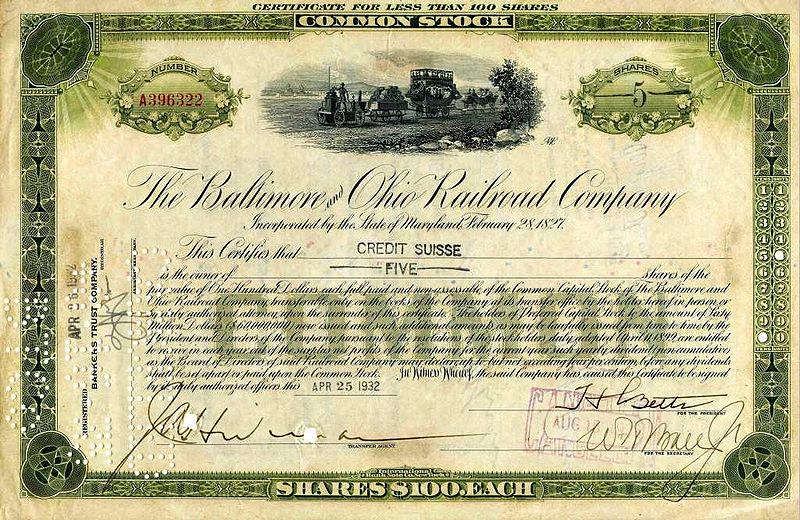 CERTIFICATE FOR LESS THAN 100 SHARES
COMMON STOCK
NUMBER
A396322
SHARES
5
The Baltimore and Ohio Railroad Company
Incorporated by the State of Maryland, February 28, 1827.
This Certifies that CREDIT SUISSE
is the owner of FIVE shares of the
par value of One Hundred Dollars each, full paid and non-assessable, of the Common Capital Stock of The Baltimore and
Ohio Railroad Company, transferable only on the books of the Company at its transfer office by the holder hereof in person or
by duly authorized attorney upon the surrender of this certificate. The holders of Preferred Capital Stock to the amount of Sixty
Million Dollars ($60,000,000) now issued and such additional amounts as may be lawfully issued from time to time by the
President and Directors of the Company, pursuant to the resolutions of the stockholders duly adopted April 11 1899, are entitled
to receive in each year out of the surplus net profits of the Company for the current year such yearly dividend, noncumulative,
as the Board of Directors of said Railroad Company may declare, up to but not exceeding four per centum, before any dividends
shall be set apart or paid upon the Common Stock. In Witness Whereof, the said Company has caused this Certificate to be signed
by its duly authorized officers this APR 25 1932
REGISTERED
APR 26 1932
BANKERS TRUST COMPANY,
REGISTRAR
TRANSFER AGENT
FOR THE PRESIDENT
AUG
FOR THE SECRETARY
International
Bank Note Co. New York
SHARES $100. EACH